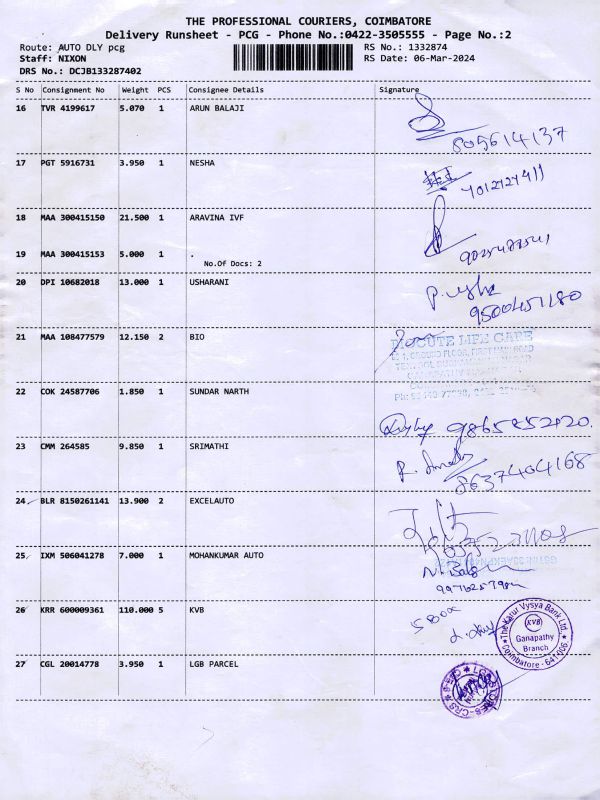 THE PROFESSIONAL COURIERS, COIMBATORE
Delivery Runsheet - PCG - Phone No.:0422-3505555 - Page No.:2
Route: AUTO DLY pcg RS No.: 1332874
Staff: NIXON RS Date: 06-Mar-2024
DRS No.: DCJB133287402
S No Consignment No Weight PCS Consignee Details Signature
16 TVR 4199617 5.070 1 ARUN BALAJI
805614137
17 PGT 5916731 3.950 1 NESHA
18 MAA 300415150 21.500 1 ARAVINA IVF
19 MAA 300415153 5.000 1 .
No.Of Docs: 2
20 DPI 10682018 13.000 1 USHARANI
P. Usha
9500451180
21 MAA 108477579 12.150 2 BIO
LIFE CARE
22 COK 24587706 1.850 1 SUNDAR NARTH
9865852120.
23 CMM 264585 9.850 1 SRIMATHI
8637404168
24 BLR 8150261141 13.900 2 EXCELAUTO
25 IXM 506041278 7.000 1 MOHANKUMAR AUTO
26 KRR 600009361 110.000 5 KVB
The Karur Vysya Bank Ltd.
KVB
Ganapathy
Branch
Coimbatore - 641 006
27 CGL 20014778 3.950 1 LGB PARCEL